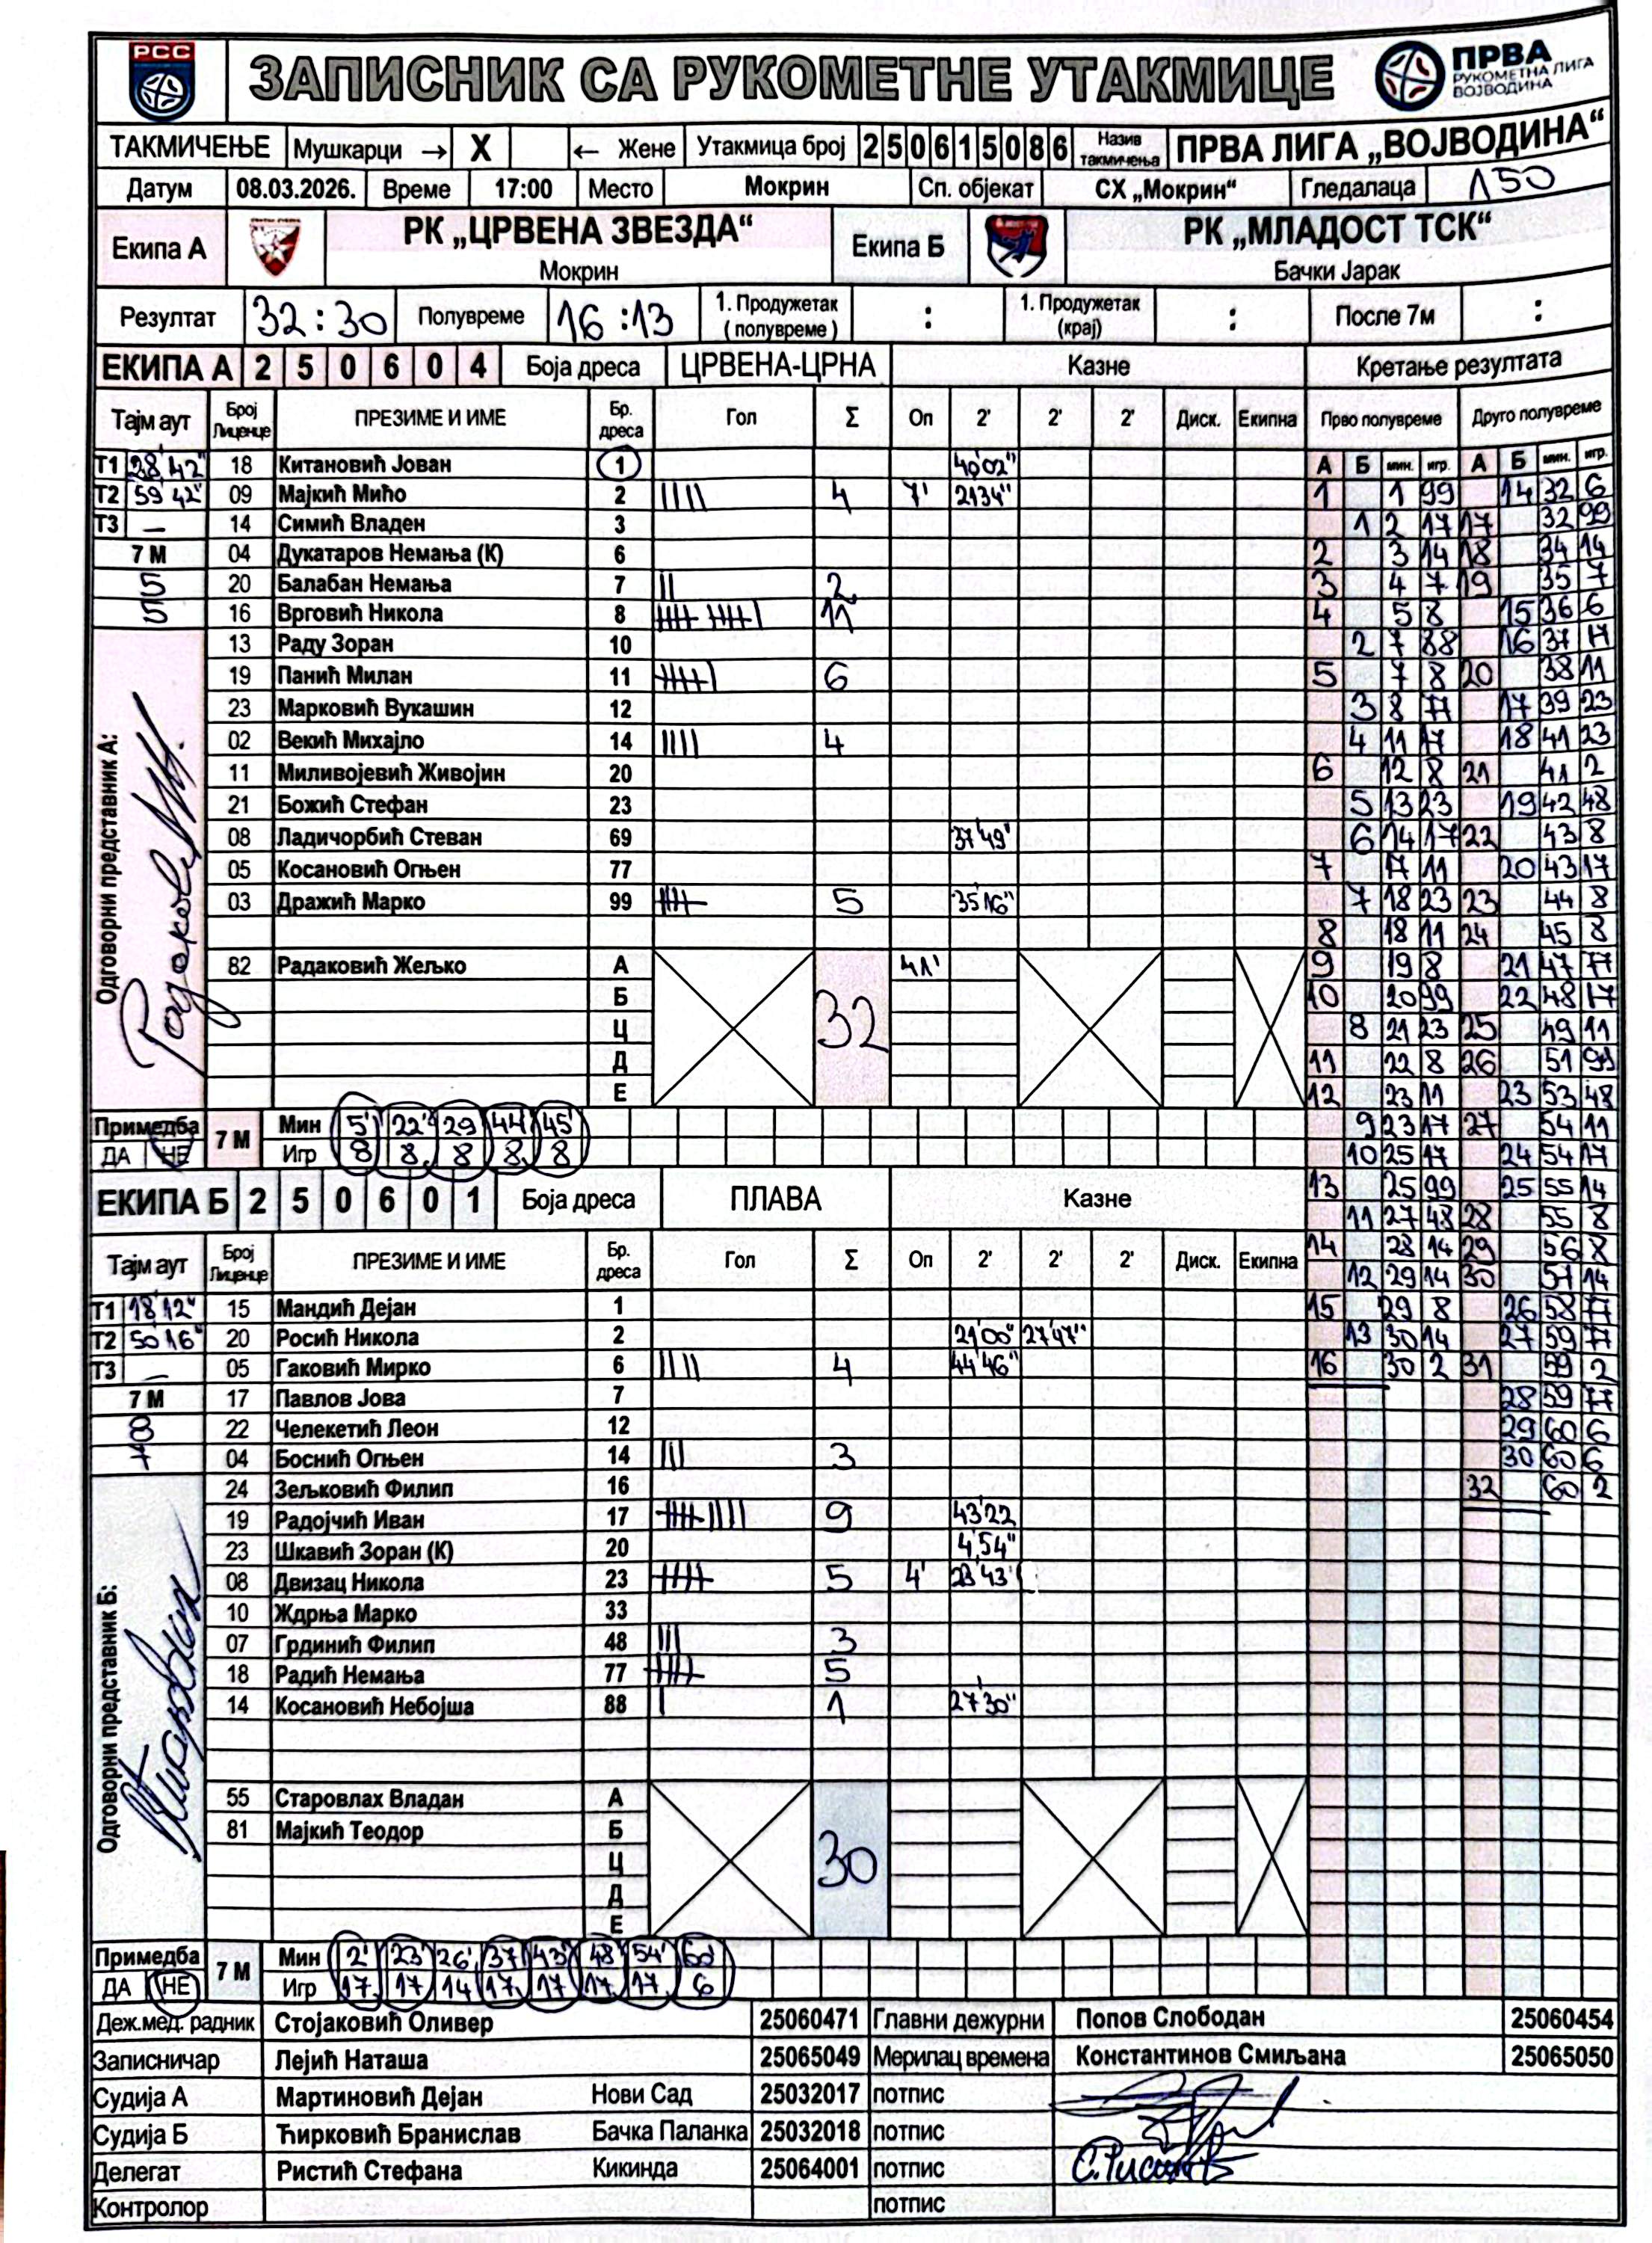 РСС
ЗАПИСНИК СА РУКОМЕТНЕ УТАКМИЦЕ
ПРВА
РУКОМЕТНА ЛИГА
ВОЈВОДИНА
ТАКМИЧЕЊЕ Мушкарци → X ← Жене Утакмица број 250615086 Назив такмичења ПРВА ЛИГА „ВОЈВОДИНА“
Датум 08.03.2026. Време 17:00 Место Мокрин Сп. објекат СХ „Мокрин“ Гледалаца 150
Екипа А РК „ЦРВЕНА ЗВЕЗДА“ Мокрин Екипа Б РК „МЛАДОСТ ТСК“ Бачки Јарак
Резултат 32:30 Полувреме 16:13 1. Продужетак (полувреме) : 1. Продужетак (крај) : После 7м :
ЕКИПА А 2 5 0 6 0 4 Боја дреса ЦРВЕНА-ЦРНА Казне Кретање резултата
Тајм аут Број Лиценце ПРЕЗИМЕ И ИМЕ Бр. дреса Гол Σ Оп 2' 2' 2' Диск. Екипна Прво полувреме Друго полувреме
А Б мин. игр. А Б мин. игр.
Т1 28'42" 18 Китановић Јован 1 40'02"
Т2 59'42" 09 Мајкић Мићо 2 IIII 4 7' 21'34"
Т3 — 14 Симић Владен 3
7 М 04 Дукатаров Немања (К) 6
5/5 20 Балабан Немања 7 II 2
16 Врговић Никола 8 11
13 Раду Зоран 10
19 Панић Милан 11 6
23 Марковић Вукашин 12
02 Векић Михајло 14 IIII 4
11 Миливојевић Живојин 20
21 Божић Стефан 23
08 Ладичорбић Стеван 69 37'49"
05 Косановић Огњен 77
03 Дражић Марко 99 5 35'16"
82 Радаковић Жељко А 41'
Б
Ц
Д
Е
32
Одговорни представник А:
1 1 99 14 32 6
1 2 17 17 32 99
2 3 14 18 34 14
3 4 7 19 35 7
4 5 8 15 36 6
2 7 88 16 37 17
5 7 8 20 38 11
3 8 77 17 39 23
4 11 17 18 41 23
6 12 8 21 41 2
5 13 23 19 42 48
6 14 17 22 43 8
7 17 11 20 43 17
7 18 23 23 44 8
8 18 11 24 45 8
9 19 8 21 47 77
10 20 99 22 48 17
8 21 23 25 49 11
11 22 8 26 51 99
12 23 11 23 53 48
9 23 17 27 54 11
10 25 17 24 54 17
13 25 99 25 55 14
11 27 48 28 55 8
14 28 14 29 56 8
12 29 14 30 57 14
15 29 8 26 58 77
13 30 14 27 59 77
16 30 2 31 59 2
28 59 77
29 60 6
30 60 6
32 60 2
Примедба ДА НЕ 7 М
Мин 5' 22' 29' 44' 45'
Игр 8 8 8 8 8
ЕКИПА Б 2 5 0 6 0 1 Боја дреса ПЛАВА Казне
Тајм аут Број Лиценце ПРЕЗИМЕ И ИМЕ Бр. дреса Гол Σ Оп 2' 2' 2' Диск. Екипна
Т1 18'12" 15 Мандић Дејан 1
Т2 50'16" 20 Росић Никола 2 21'00" 27'47"
Т3 — 05 Гаковић Мирко 6 IIII 4 44'46"
7 М 17 Павлов Јова 7
22 Челекетић Леон 12
04 Боснић Огњен 14 III 3
24 Зељковић Филип 16
19 Радојчић Иван 17 9 43'22
23 Шкавић Зоран (К) 20 4'54"
08 Двизац Никола 23 5 4' 23'43"
10 Ждрња Марко 33
07 Грдинић Филип 48 III 3
18 Радић Немања 77 5
14 Косановић Небојша 88 I 1 27'30"
55 Старовлах Владан А
81 Мајкић Теодор Б
Ц
Д
Е
30
Одговорни представник Б:
Примедба ДА НЕ 7 М
Мин 2' 23' 26' 37' 43' 48' 54' 60'
Игр 17 17 14 17 17 17 17 6
Деж.мед. радник Стојаковић Оливер 25060471 Главни дежурни Попов Слободан 25060454
Записничар Лејић Наташа 25065049 Мерилац времена Константинов Смиљана 25065050
Судија А Мартиновић Дејан Нови Сад 25032017 потпис
Судија Б Ћирковић Бранислав Бачка Паланка 25032018 потпис
Делегат Ристић Стефана Кикинда 25064001 потпис
Контролор потпис